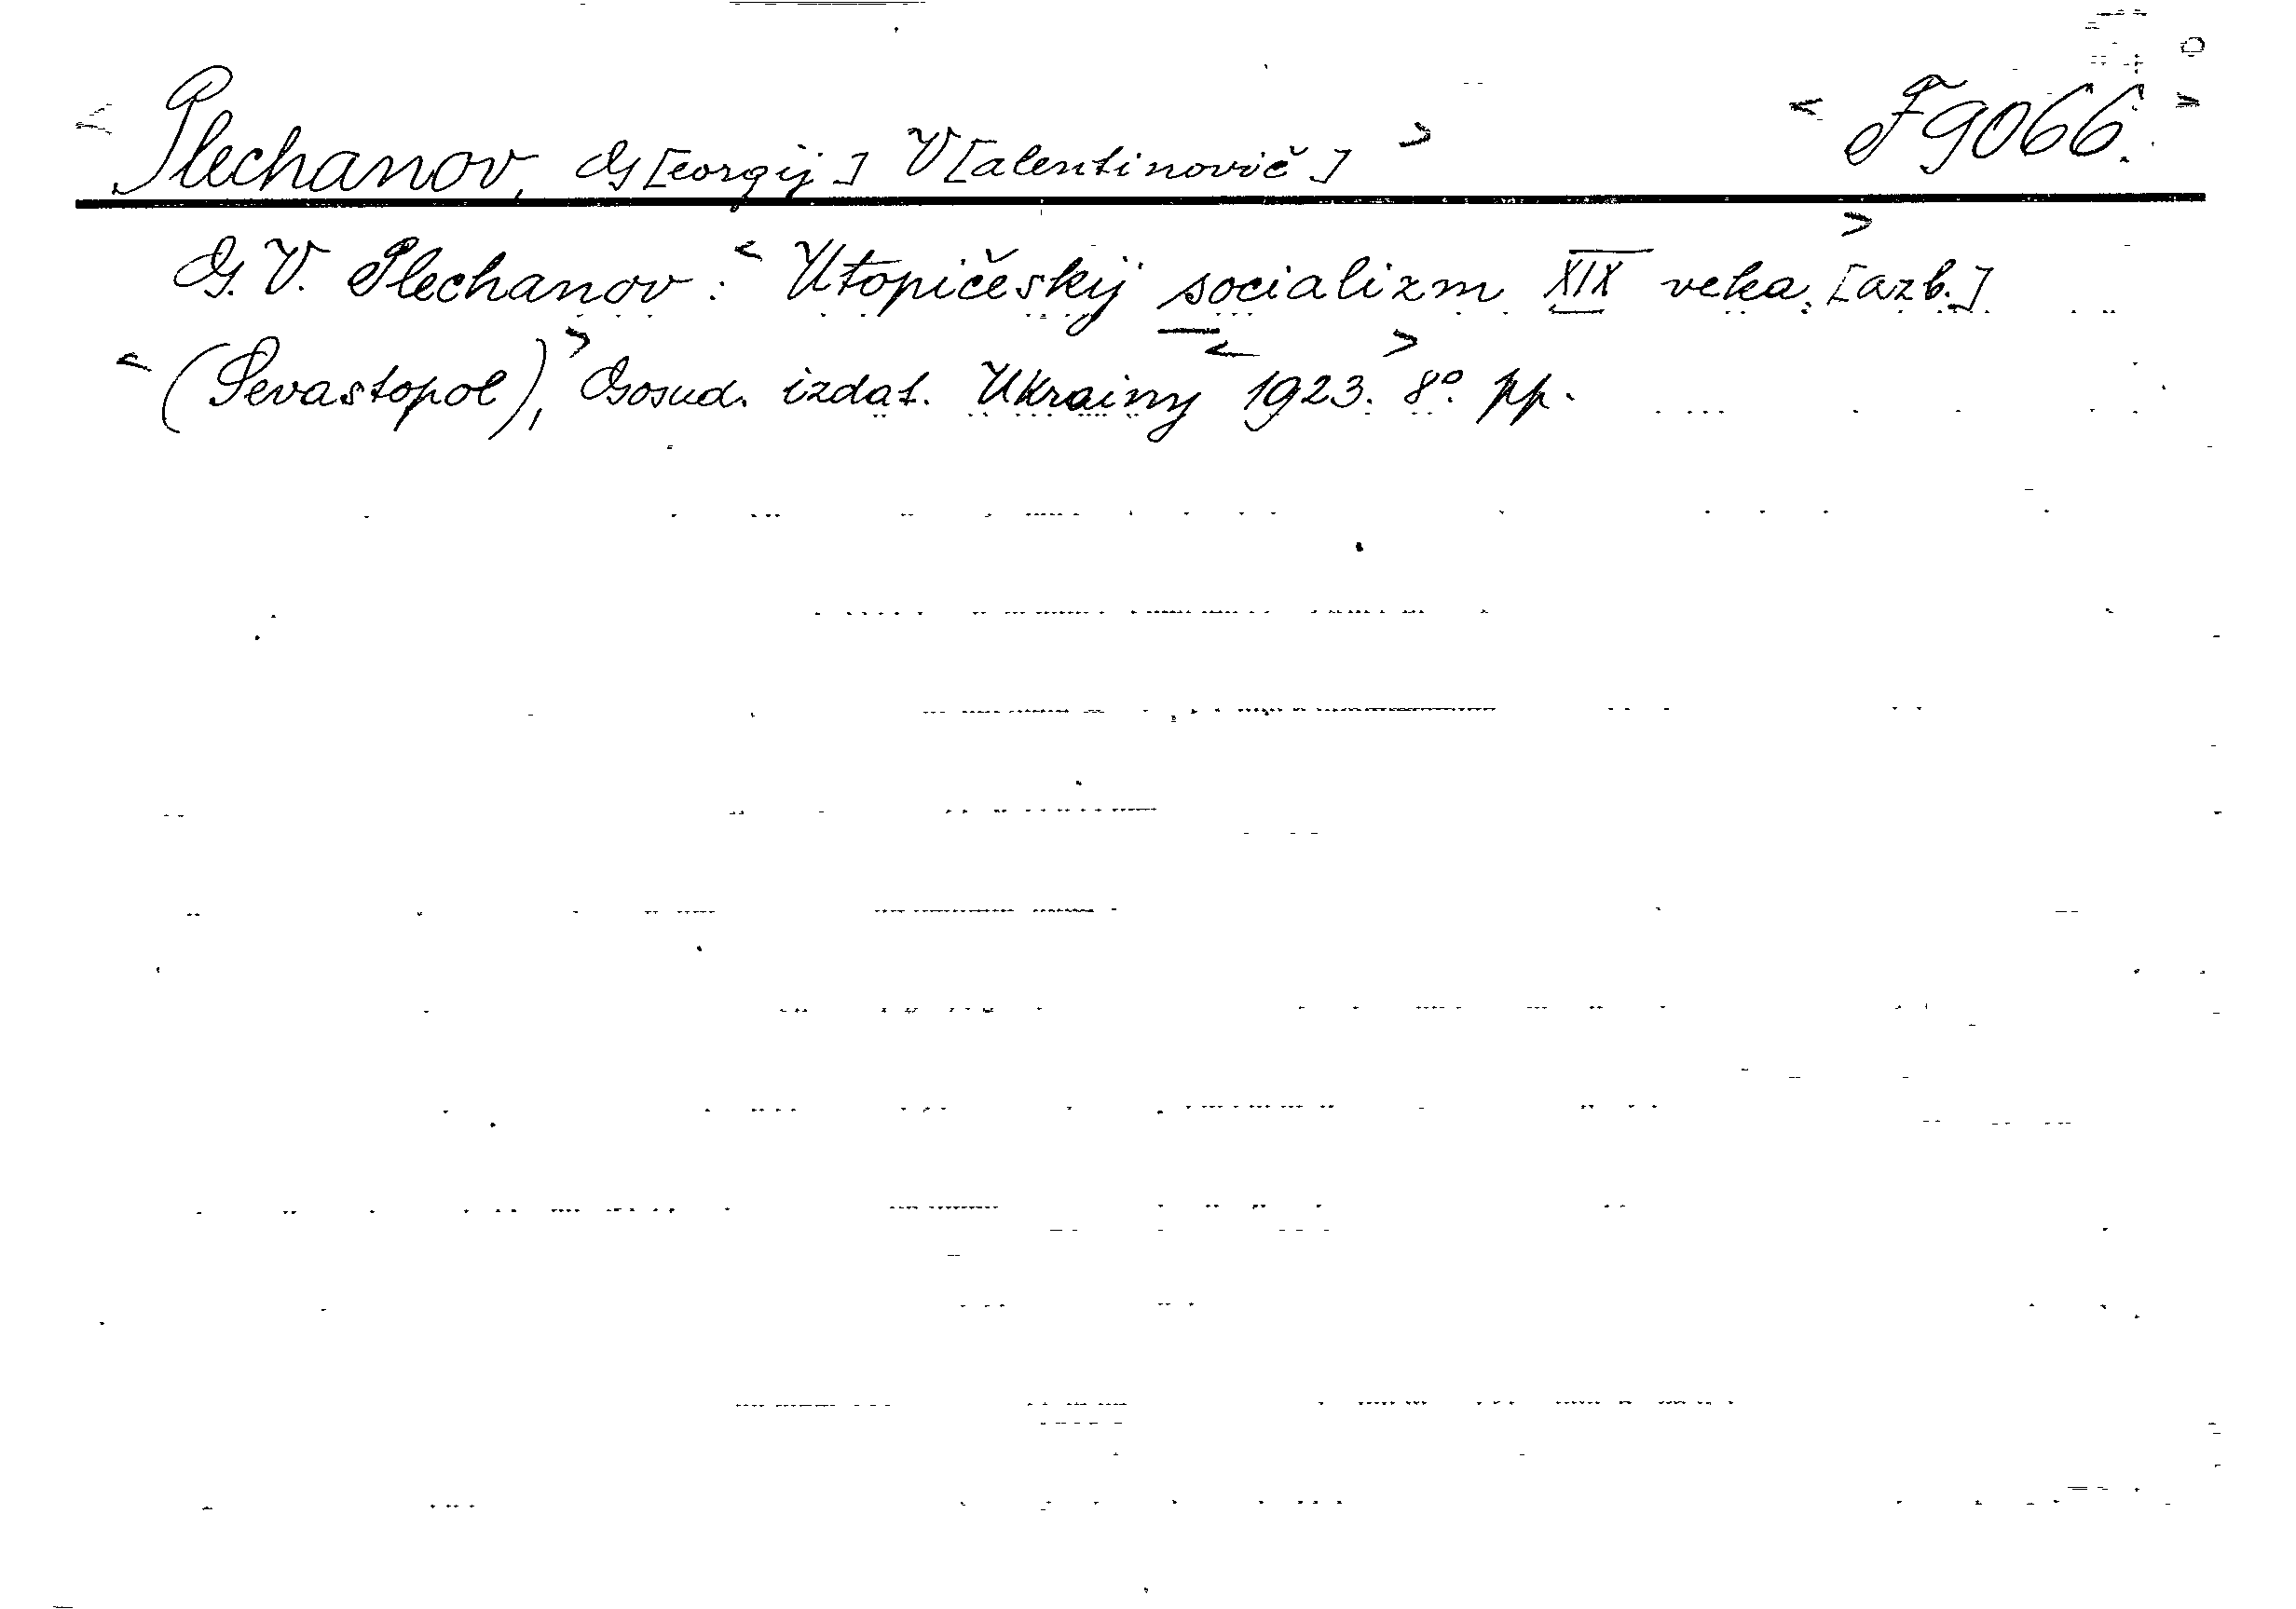 < Plechanov, G[eorgij] V[alentinovič] > < F9066. >
G. V. Plechanov: < Utopičeskij socializm XIX veka. [azb.] >
< (Sevastopol), > Gosud. izdat. Ukrainy < 1923. > 8º. pp.